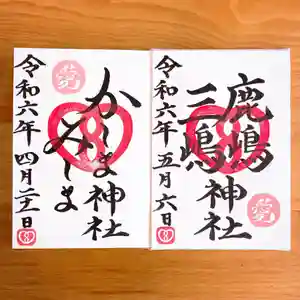 かしま神社
みしま
令和六年 四月二十一日
鹿嶋神社
三嶋
令和六年 五月六日